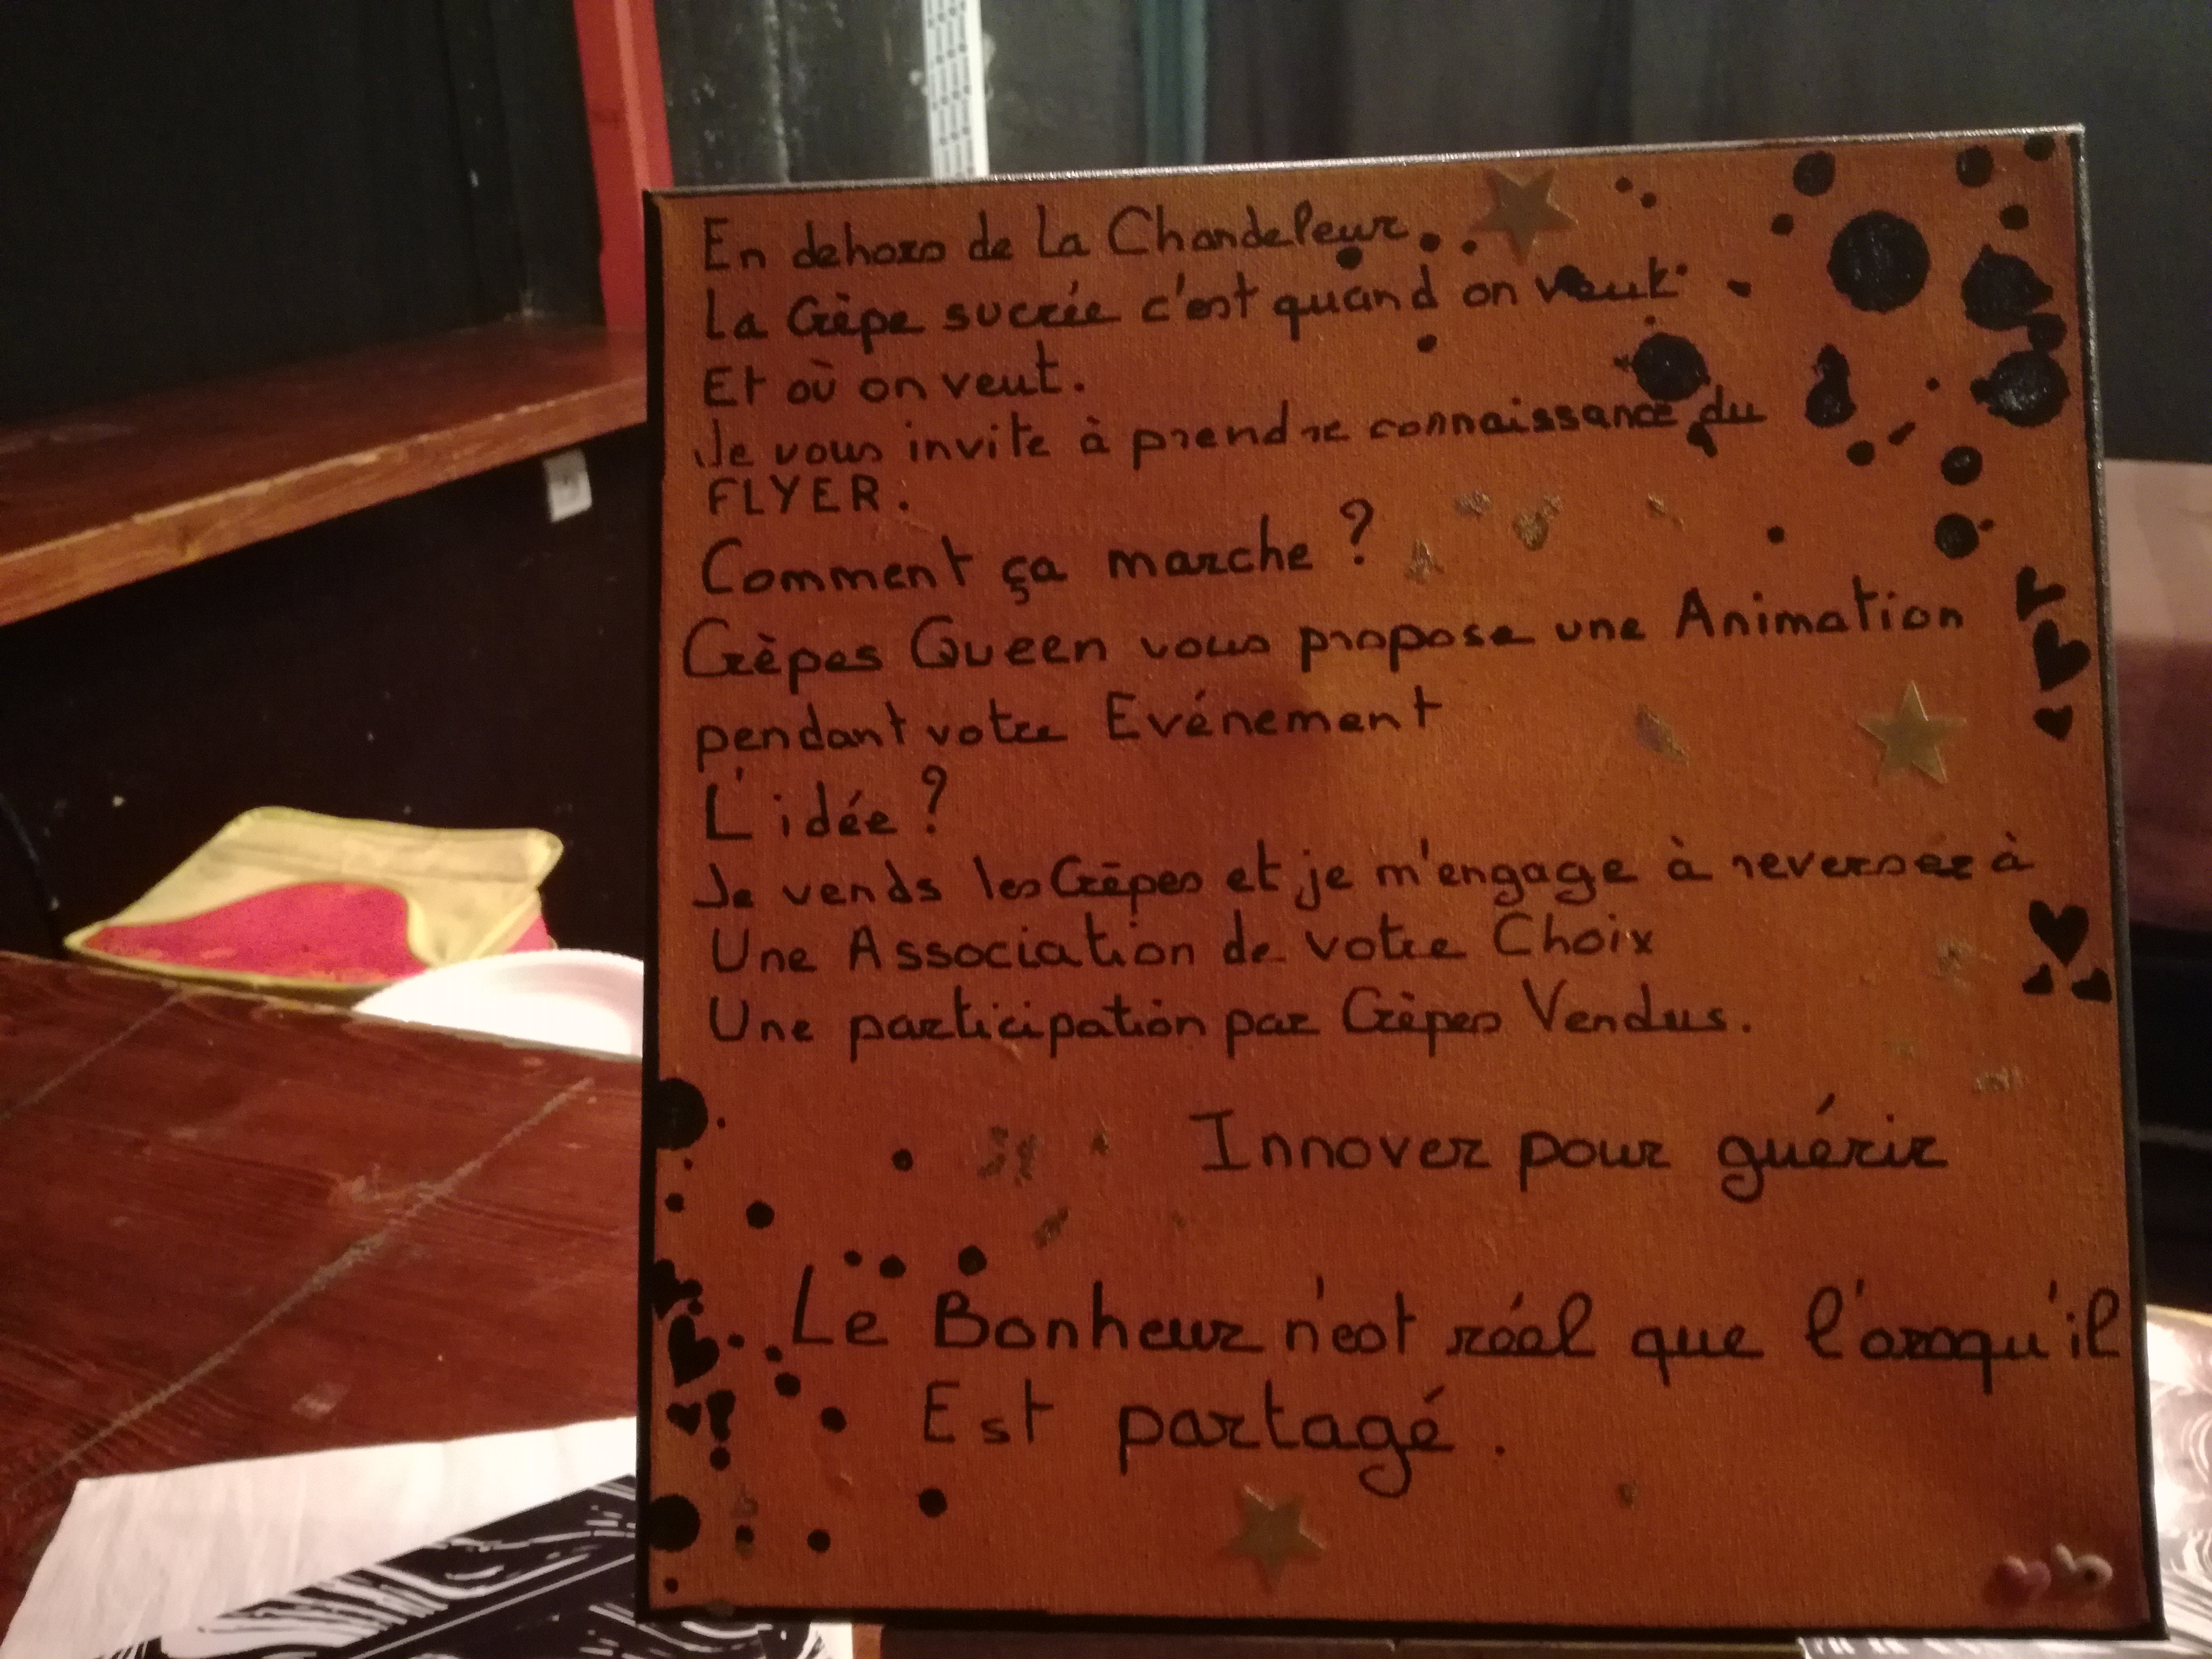 En dehors de La Chandeleur..
La Crêpe sucrée c'est quand on veut
Et où on veut.
Je vous invite à prendre connaissance du
FLYER.
Comment ça marche ?
Crêpes Queen vous propose une Animation
pendant votre Evénement
L'idée ?
Je vends les Crêpes et je m'engage à reverser à
Une Association de votre Choix
Une participation par Crêpes Vendus.
Innover pour guérir
Le Bonheur n'est réel que l'orsqu'il
Est partagé.